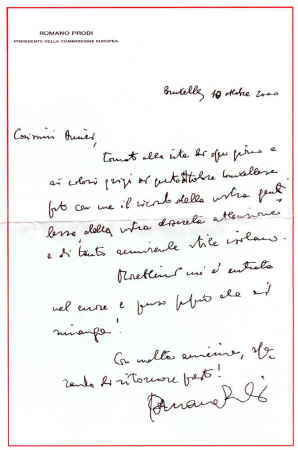 ROMANO PRODI
PRESIDENTE DELLA COMMISSIONE EUROPEA
Bruxelles, 10 ottobre 2000
Carissimi Amici,
tornato alla vita di ogni giorno e
ai colori grigi di quest'ottobre brussellese
porto con me il ricordo della vostra genti
lezza della vostra discreta attenzione
e di tanto ammirevole stile isolano.
mi è entrata
nel cuore e penso proprio che vi
rimanga!
Con molta amicizia, spe
rando di ritornare presto!
Romano Prodi